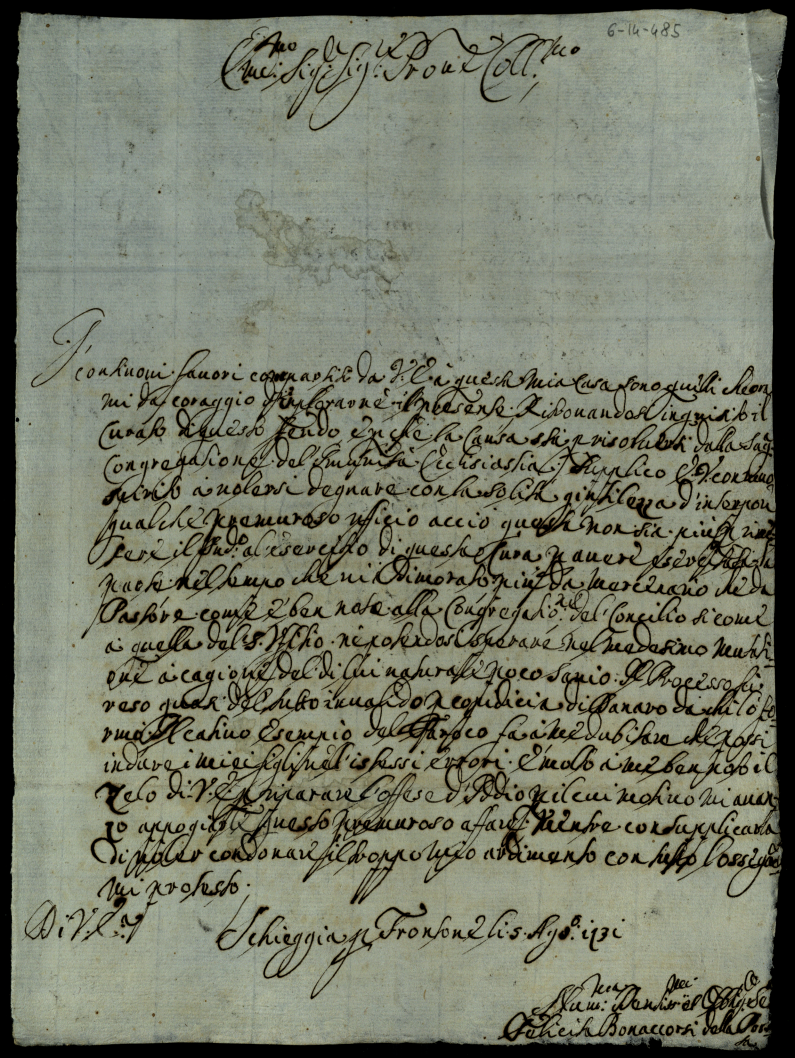 6-14-485
Em:mo Sig: Sig: Pron e Coll:mo
I continovi favori compartiti da V: E a questa mia Casa sono quelli che ora
mi da coraggio d'implorarne il presente. Ritrovandosi inquisito il
Curato di questo Feudo e perche la Causa sta p risolversi dalla Sag:
Congregatione del Immunità Ecclesiastica Supplico E V con tutto
spirito a volersi degnare con la solita gentilezza d'interpore
qualche premuroso uficio acciò questa non sia più p rime
tere il Sud:o al esercitio di questa Cura p avere
parte nel tempo che vi è dimorato più da Mercenario che da
Pastore come è ben noto alla Congregatio:ne del Concilio si come
a quella del S. Ofitio. ne potendosi sperare nel medesimo mutati
one a cagione del di lui naturale poco sano. Il Processo si
reso quasi del tutto invalido p copidicia di Danaro da chi lo fo
rmò. Il cativo Esempio del Paroco fa a me dubitare che possi
indure i miei figli nel'istessi errori. È molto a me ben noto il
zelo di V: E p riparare l'offese d'Iddio p il cui motivo mi avan
zo appogiarle questo premuroso affare. Mentre con supplicarla
di voler condonare il troppo mio ardimento con tutto l'ossequio
mi protesto.
Di V: E:a
Schieggia p Frontone li 5. Ag:o 1731
Hum:ma Dev:ma et Oblig: Se
Felicita Bonaccorsi della Porta